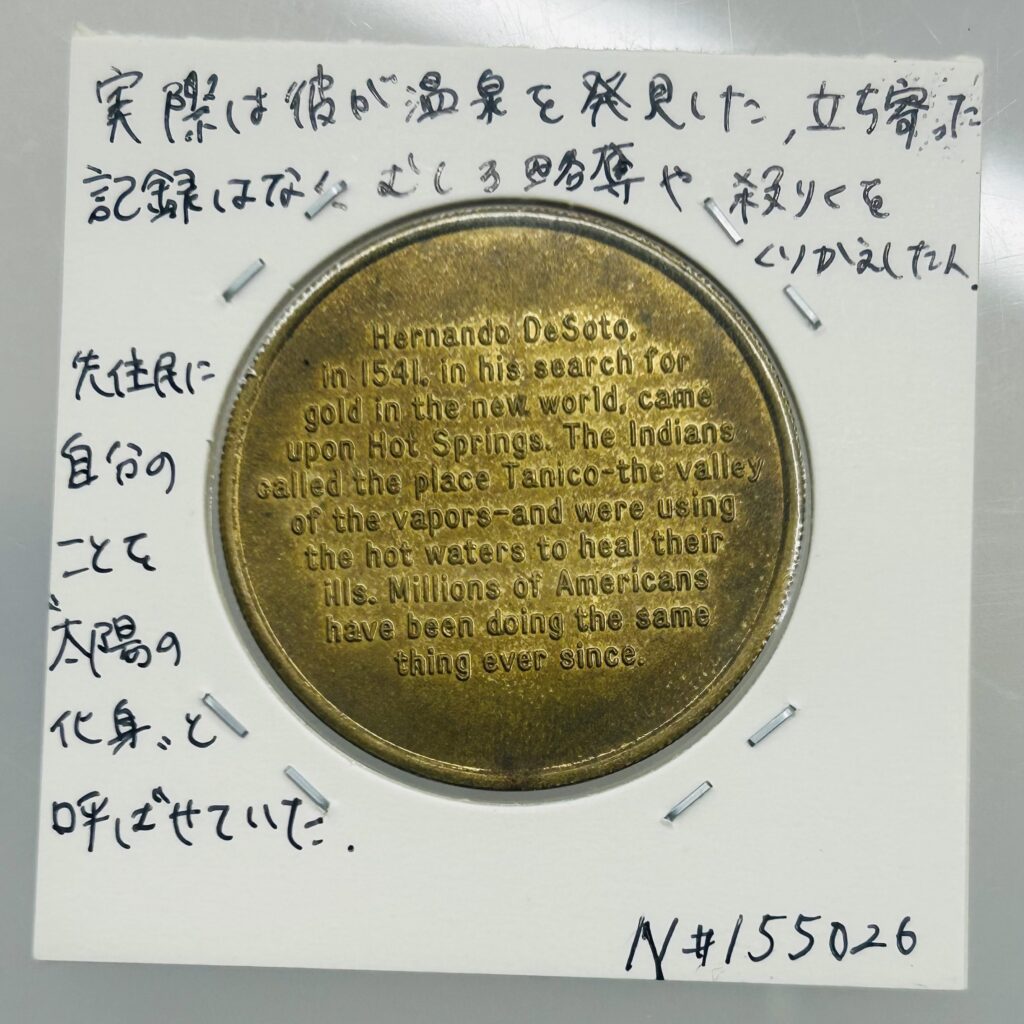 実際は彼が温泉を発見した,立ち寄った
記録はなく むしろ略奪や 殺りくを
くりかえした人.
先住民に
自分の
ことを
"太陽の
化身"と
呼ばせていた.
Hernando DeSoto,
in 1541, in his search for
gold in the new world, came
upon Hot Springs. The Indians
called the place Tanico-the valley
of the vapors-and were using
the hot waters to heal their
ills. Millions of Americans
have been doing the same
thing ever since.
N#155026